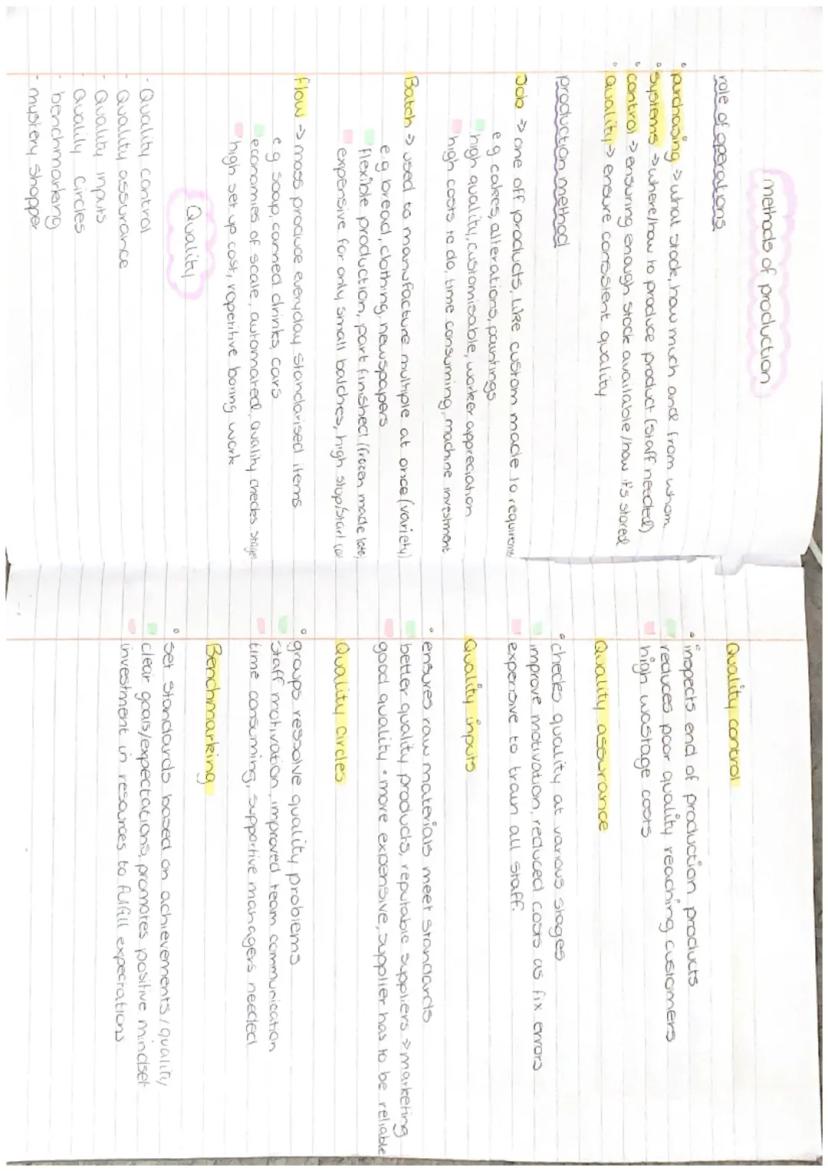 methods of production
role of operations
° purchasing → what stock, how much and from whom
° systems → where/how to produce product (staff needed)
° control → ensuring enough stock available/how it's stored
° Quality → ensure consistent quality
production method
Job → one off products, like custom made to
e.g cakes, alterations, paintings
high quality, customisable, worker appreciation
high costs to do, time consuming, machine investment
Batch → used to manufacture multiple at once (variety)
e.g bread, clothing, newspapers
flexible production, part finished (frozen made late
expensive for only small batches, high stop/start
flow → mass produce everyday standarised items
e.g soap, canned drinks, cars
economies of scale, automated, quality checks
high set up cost, repetitive boring work
Quality
- Quality control
- Quality assurance
- Quality inputs
- Quality circles
- benchmarking
- mystery shopper
Quality control
° inspects end of production products
reduces poor quality reaching customers
high wastage costs
Quality assurance
° checks quality at various stages
improve motivation, reduced costs as fix errors
expensive to train all staff.
Quality inputs
° ensures raw materials meet standards
better quality products, reputable suppliers → marketing
good quality = more expensive, supplier has to be reliable
Quality circles
° groups resolve quality problems
staff motivation, improved team communication
time consuming, supportive managers needed
Benchmarking
° set standards based on achievements/quality
clear goals/expectations, promotes positive mindset
investment in resources to fulfill expectations